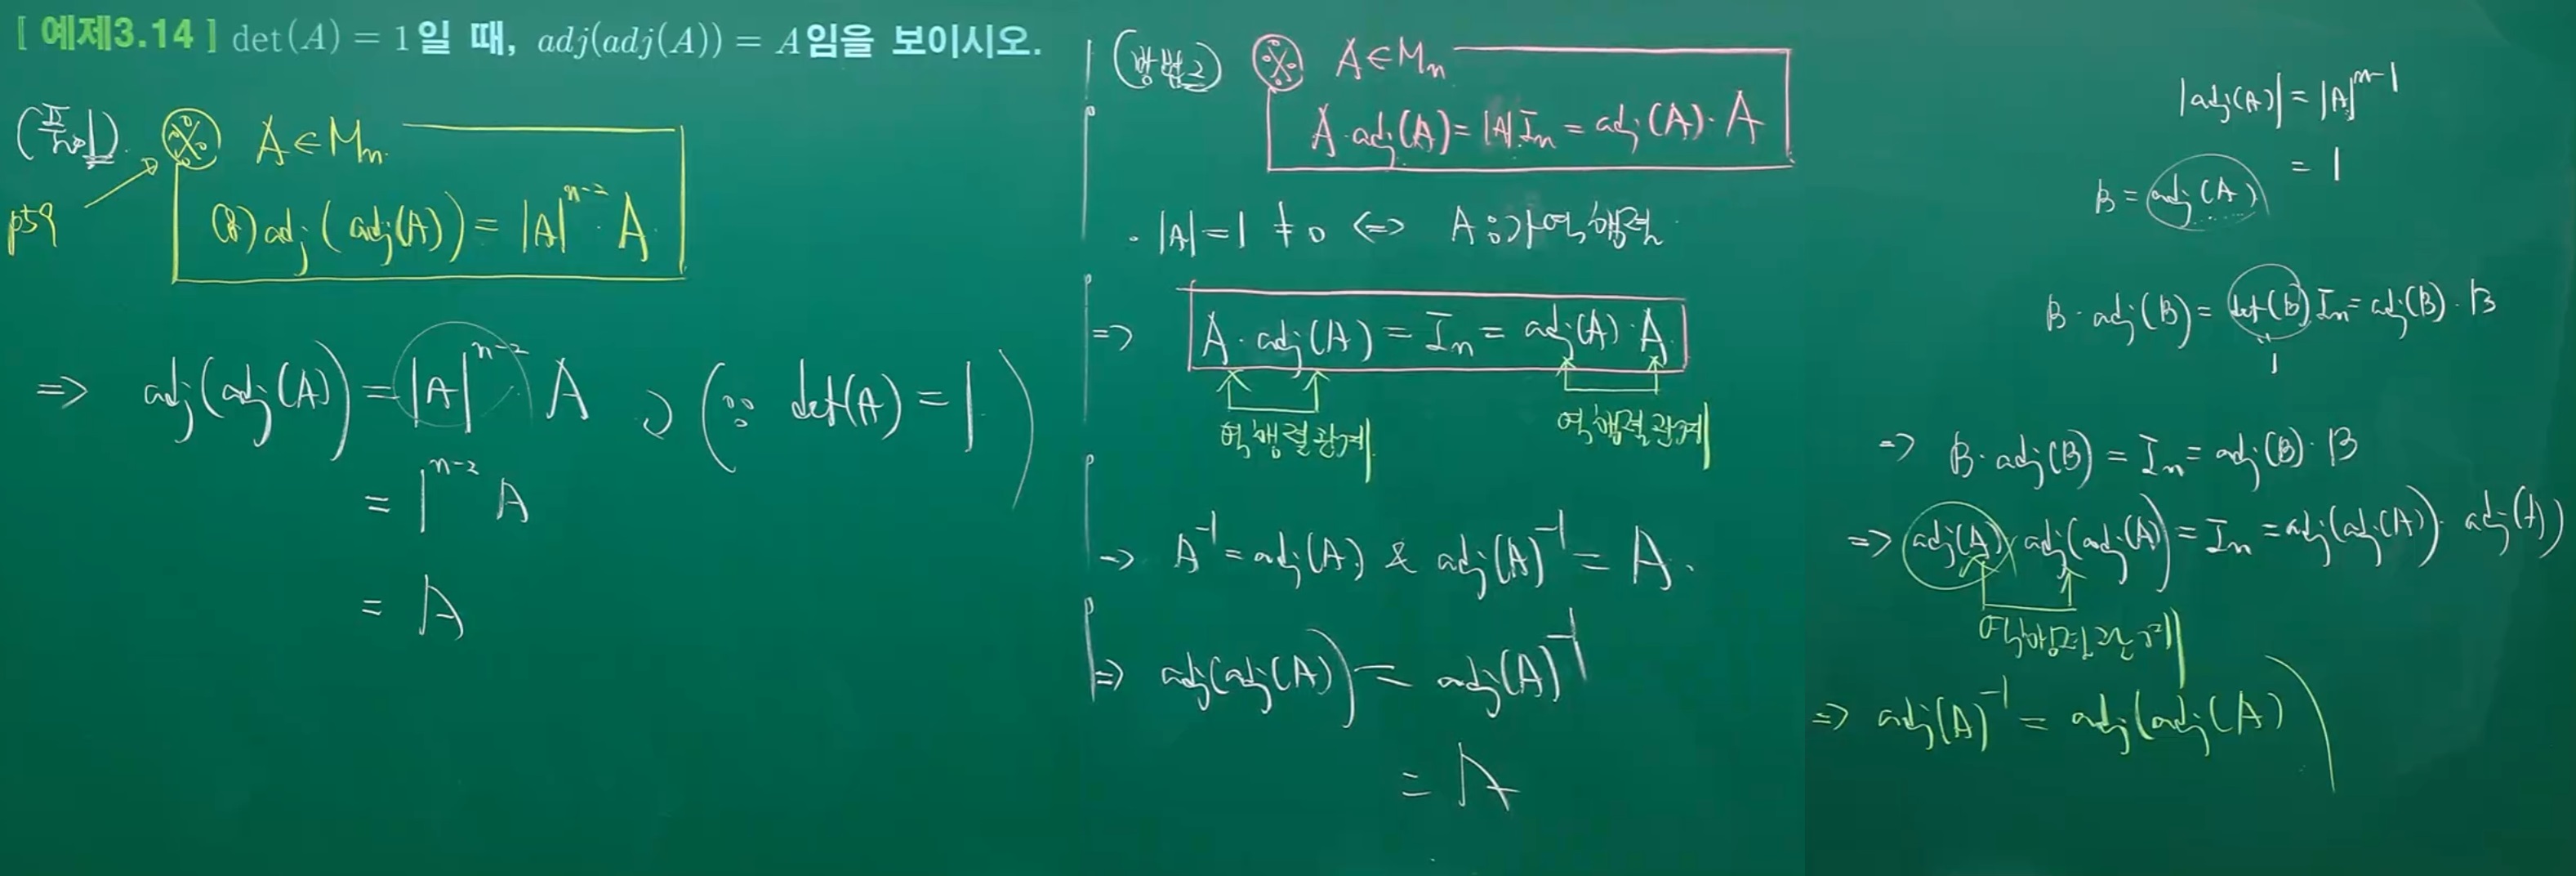 [ 예제3.14 ] det(A) = 1일 때, adj(adj(A)) = A임을 보이시오.
(풀이).
※ A∈Mₙ.
p59
(8) adj(adj(A)) = |A|ⁿ⁻²·A
⇒ adj(adj(A)) = |A|ⁿ⁻²·A (∵ det(A) = 1)
= 1ⁿ⁻² A
= A
(방법2) ※ A∈Mₙ
A·adj(A) = |A|Iₙ = adj(A)·A
· |A| = 1 ≠ 0 ⇔ A : 가역행렬
⇒ A·adj(A) = Iₙ = adj(A)·A
역행렬관계 역행렬관계
⇒ A⁻¹ = adj(A) & adj(A)⁻¹ = A.
⇒ adj(adj(A)) = adj(A)⁻¹
= A
|adj(A)| = |A|ⁿ⁻¹
= 1
B = adj(A)
B·adj(B) = det(B)Iₙ = adj(B)·B
1
⇒ B·adj(B) = Iₙ = adj(B)·B
⇒ adj(A)·adj(adj(A)) = Iₙ = adj(adj(A))·adj(A)
역행렬관계
⇒ adj(A)⁻¹ = adj(adj(A))